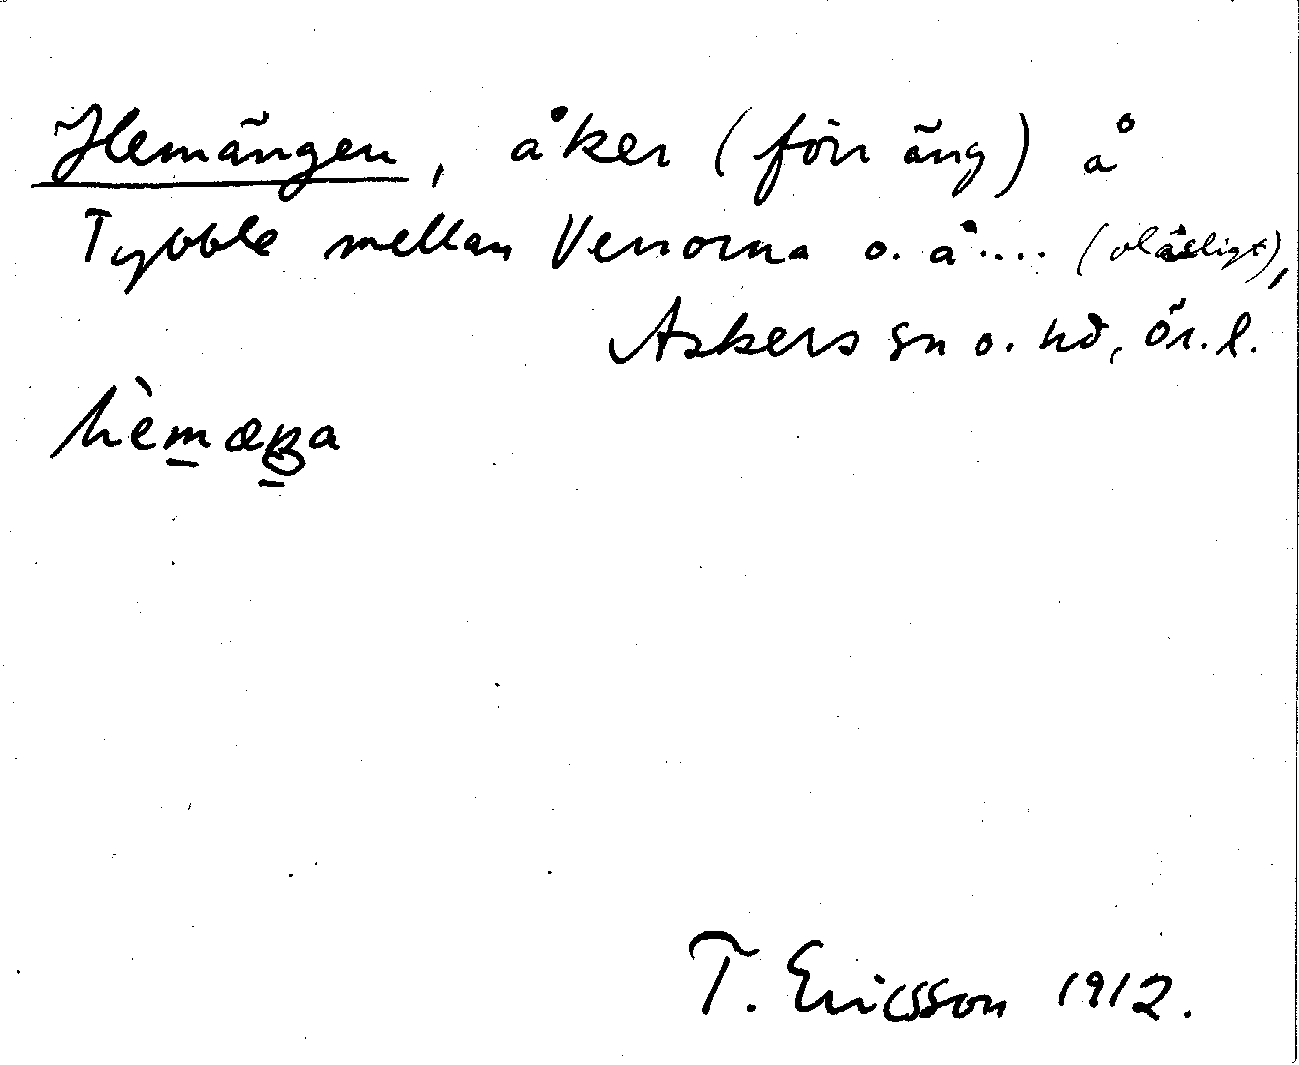 Hemängen, åker (förr äng) å
Tybble mellan Verrorna o. å.... (oläsligt),
Askers sn o. hd, ör. l.
T. Ericsson 1912.